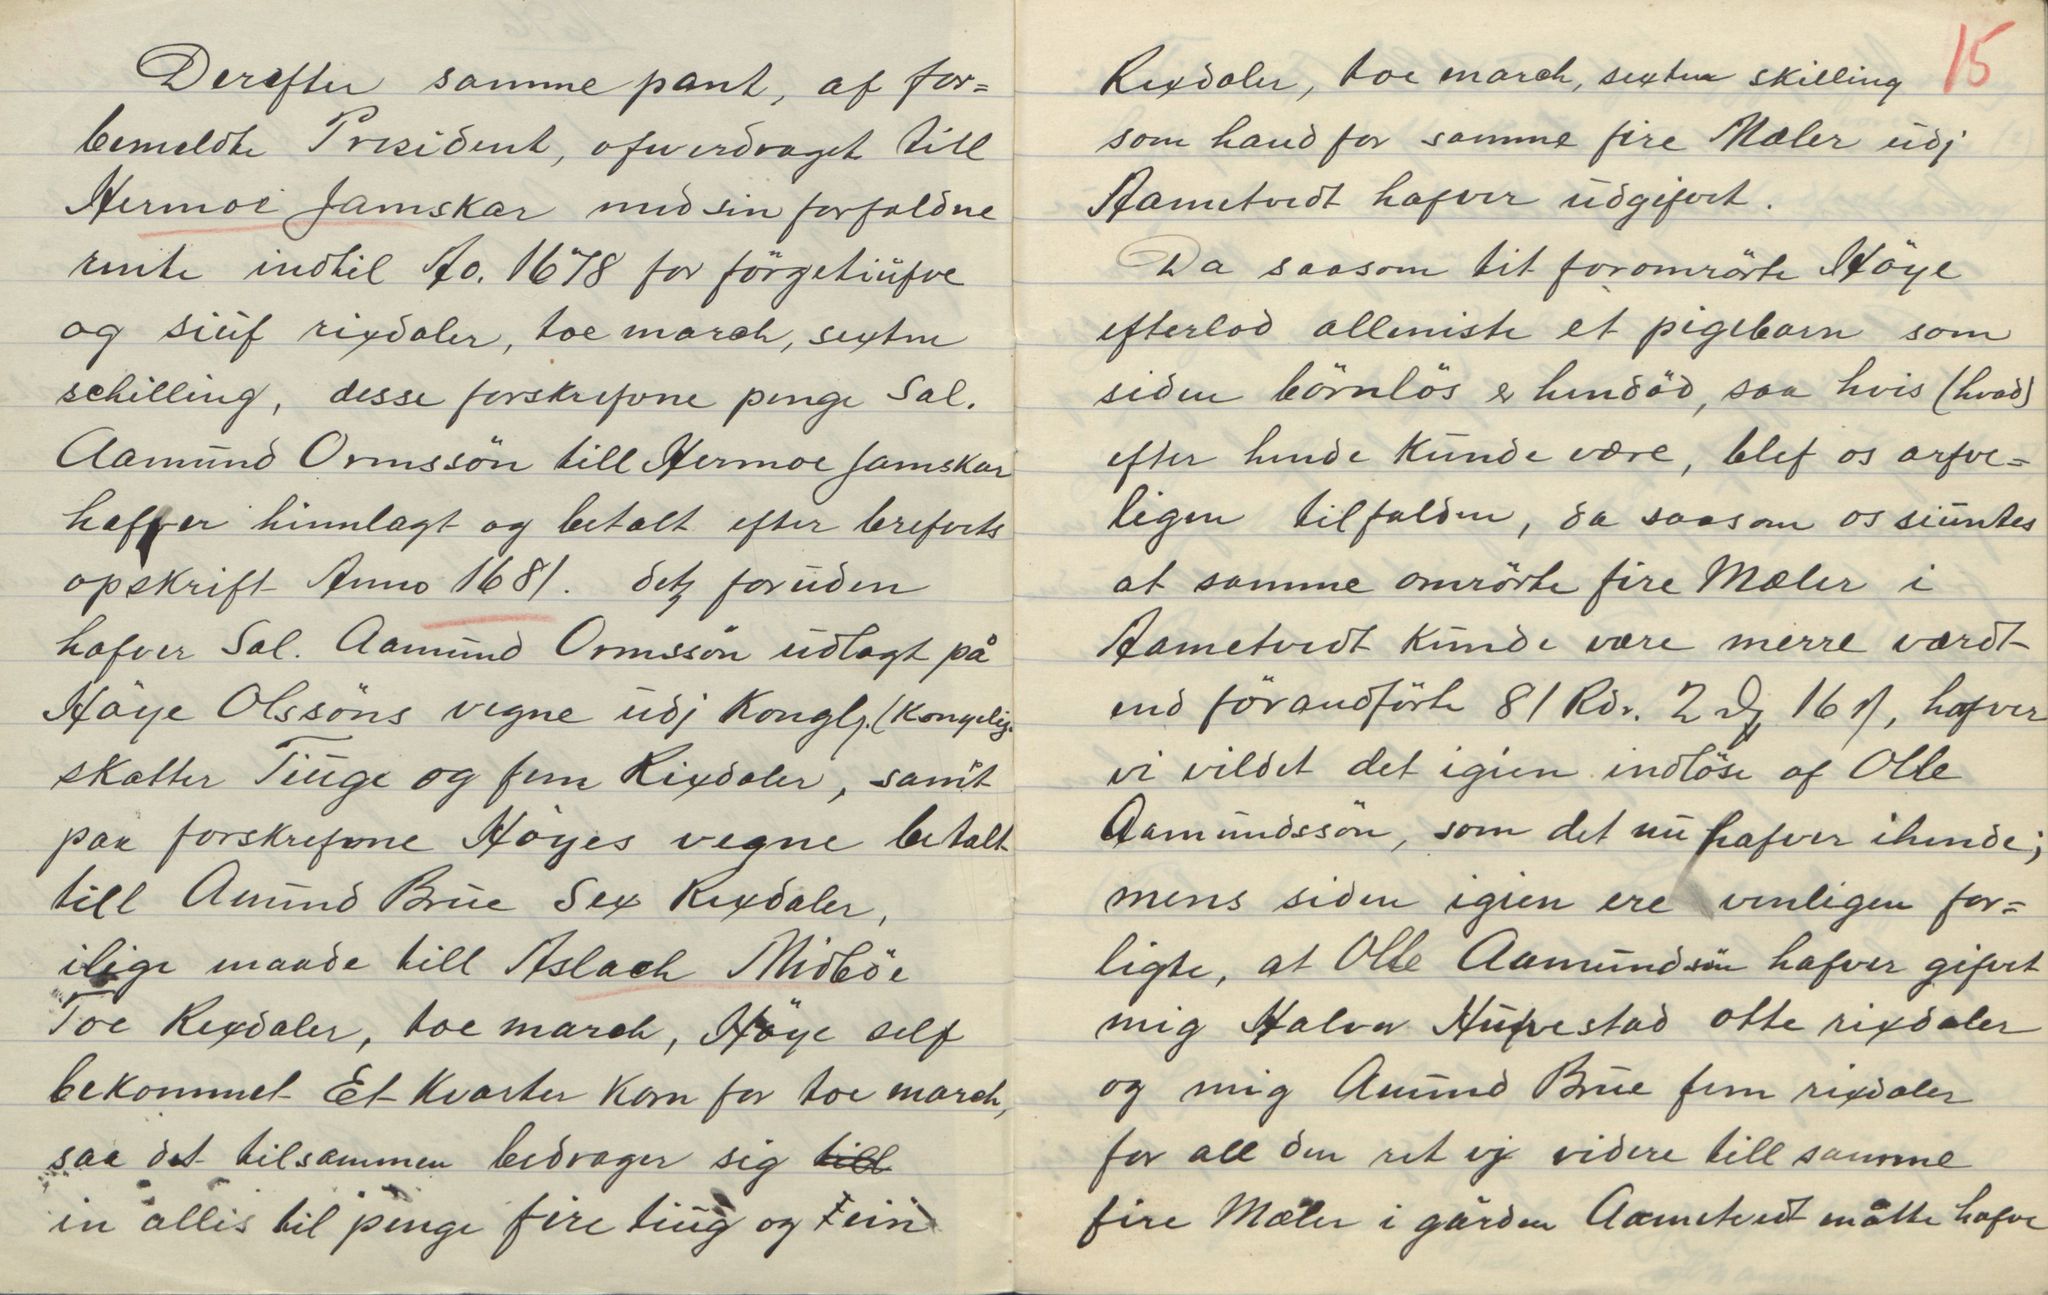 Derefter samme pant, af for=
bemeldte President, ofwerdraget till
Hermoe Jamskar med sin forfaldne
rente indtil Ao. 1678 for förgetiüfve
og siüf rixdaler, toe march, sexten
schilling, desse forskrefvne penge Sal.
Aamünd Ormssön till Hermoe Jamskar
hafver hinnlagt og betalt efter brefvets
opskrift Anno 1681. detz foruden
hafver Sal. Aamünd Ormssön üdlagt på
Höye Olssöns vegne üdj Konglj. (Kongelig.
skatter Tiüge og fem Rixdaler, samt
paa forskrefvne Höyes vegne betalt
till Amünd Brüe Sex Rixdaler,
ilige maade till Aslach Midböe
Toe Rixdaler, toe march, Höye self
bekommet Et Kvarter Korn for toe march,
saa det tilsammen bedrager sig till
in allis til penge fire tiüg og ein
Rixdaler, toe march, sexten skilling 15
som hand for samme fire Mæler üdj
Aametvedt hafver üdgifvet.
Da saasom tit foromrörte Höye
efterlod alleniste et pigebarn som
siden börnlös er hendöd, saa hvis (hvad)
efter hende Künde være, blef os arfve=
ligen tilfalden, da saasom os siüntes
at samme omrörte fire Mæler i
Aametvedt Künde være merre værdt
end förandförte 81 Rdr. 2 16, hafver
vi vildet det igien indlöse af Olle
Aamündssön, som det nü hafver ihende;
mens siden igien ere venligen for=
ligte, at Olle Aamündsön hafver gifvet
mig Halvor Hüfvestad otte rixdaler
og mig Amünd Brüe fem rixdaler
for all den ret vj videre till samme
fire Mæler i gården Aametvedt måtte hafve